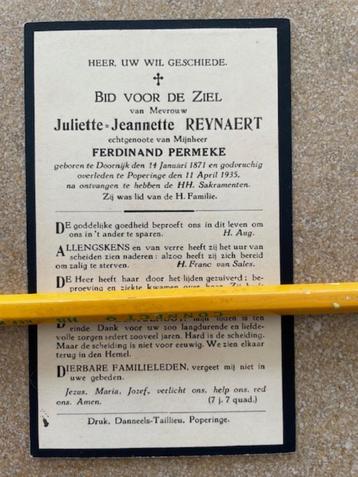 HEER, UW WIL GESCHIEDE.
BID VOOR DE ZIEL
van Mevrouw
Juliette-Jeannette REYNAERT
echtgenoote van Mijnheer
FERDINAND PERMEKE
geboren te Doornijk den 14 Januari 1871 en godvruchtig
overleden te Poperinge den 11 April 1935,
na ontvangen te hebben de HH. Sakramenten.
Zij was lid van de H. Familie.
DE goddelijke goedheid beproeft ons in dit leven om
ons in 't ander te sparen. H. Aug.
ALLENGSKENS en van verre heeft zij het uur van
scheiden zien naderen: alzoo heeft zij zich bereid
om zalig te sterven. H. Franc van Sales.
DE Heer heeft haar door het lijden gezuiverd; be-
proeving en ziekte kwamen
einde. Dank voor uw zoo langdurende en liefde-
volle zorgen sedert zooveel jaren. Hard is de scheiding.
Maar de scheiding is niet voor eeuwig. We zien elkaar
terug in den Hemel.
DIERBARE FAMILIELEDEN, vergeet mij niet in
uwe gebeden.
Jezus, Maria, Jozef, verlicht ons, help ons, red
ons. Amen. (7 j. 7 quad.)
Druk. Danneels-Taillieu, Poperinge.